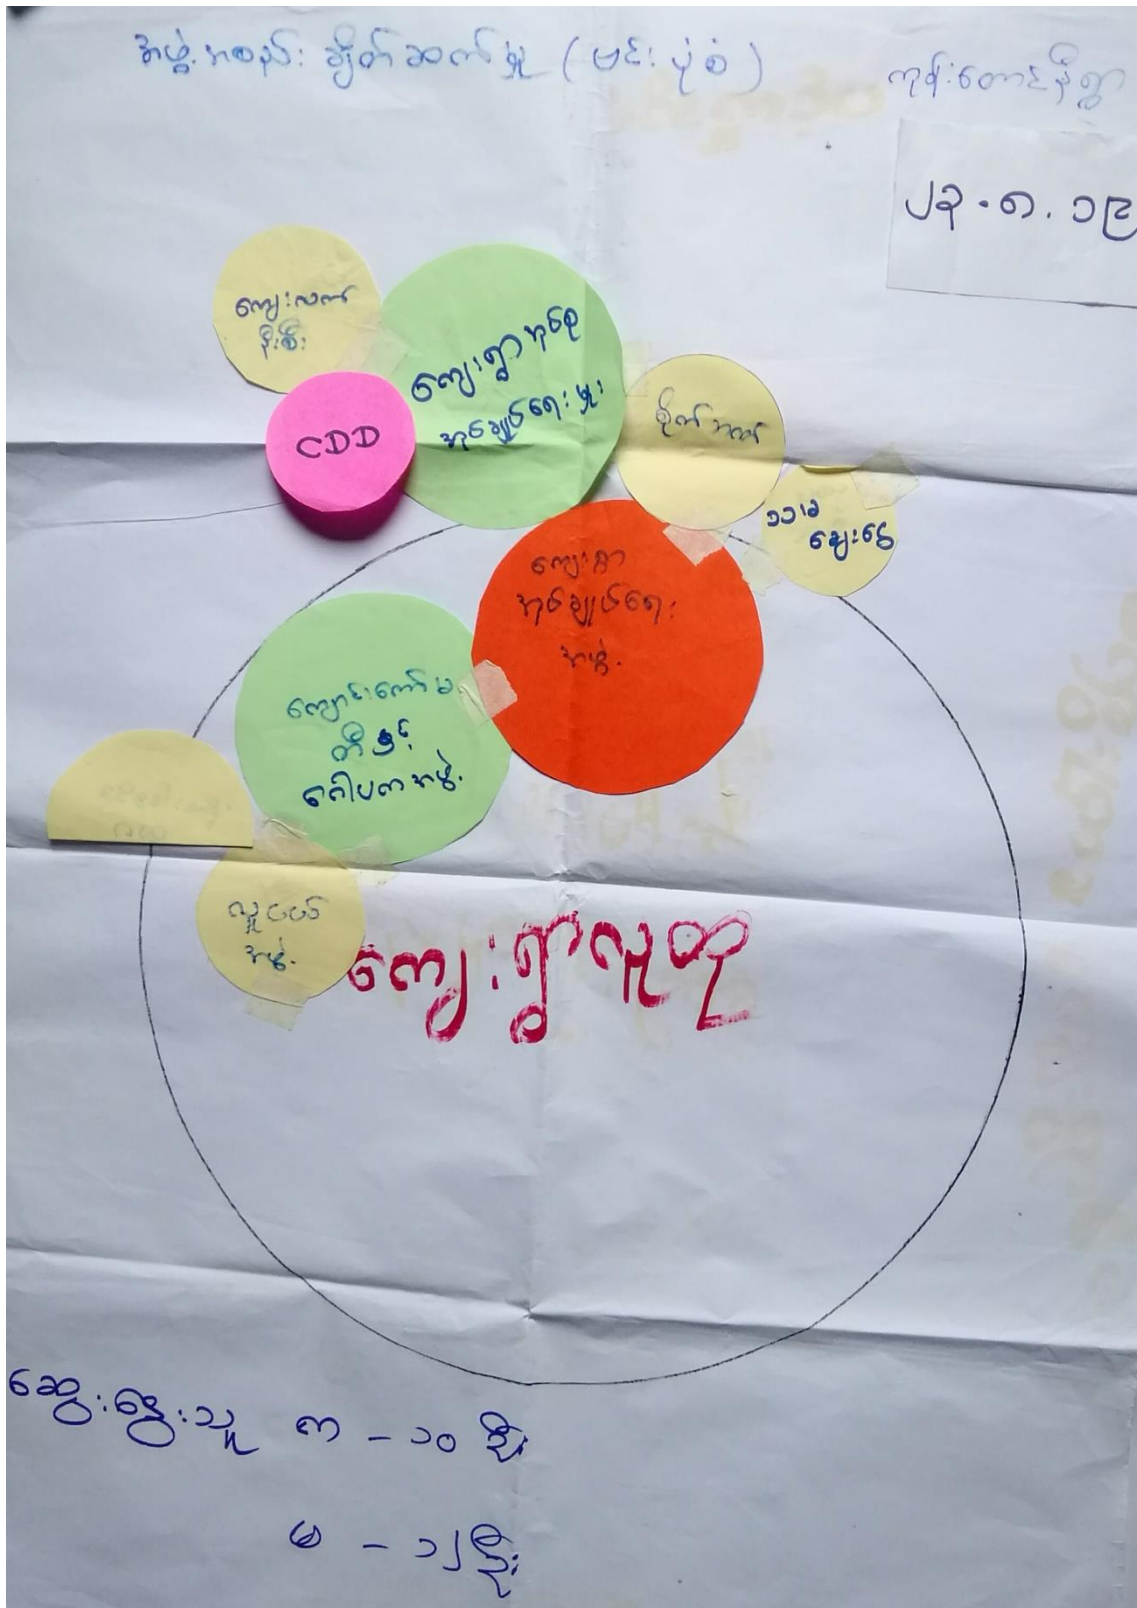 အဖွဲ့အစည်း ချိတ်ဆက်မှု (ဗင်းပုံစံ)
ကုန်းတောင်နီရွာ
၂၃.၈.၁၉
ကျေးလက်
မီးစီး
ကျေးရွာအုပ်စု
အုပ်ချုပ်ရေးမှူး
CDD
စိုက်/ဘဏ်
သာမ
ချေးငွေ
ကျေးရွာ
အုပ်ချုပ်ရေး
အဖွဲ့
ကျောင်းကော်မ
တီနှင့်
ဂေါပကအဖွဲ့
လူငယ်
အဖွဲ့
ကျေးရွာလူထု
ဆွေးနွေးသူ ကျ - ၁၀ ဦး
မ - ၁၂ ဦး